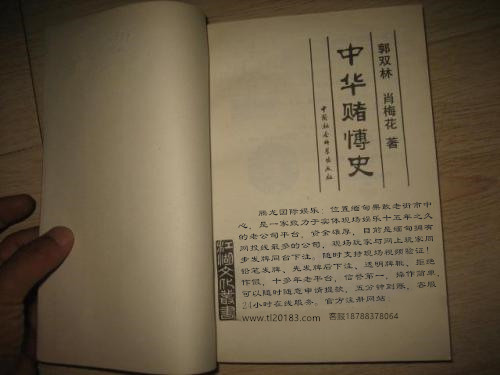 郭双林 肖梅花 著
中华赌博史
中国社会科学出版社
江湖文化丛书
腾龙国际娱乐:位置缅甸果敢老街市中
心,是一家致力于实体现场娱乐十五年之久
的老公司平台,资金雄厚,目前是缅甸拥有
网投线最多的公司,现场玩家与网上玩家同
步发牌同台下注。随时支持现场视频验证!
铅笔发牌,先发牌后下注,透明牌靴,拒绝
作假,十多年老平台,信誉第一,操作简单,
可以随时随意申请提款,五分钟到账,客服
24小时在线服务,官方注册网站
www.tl20183.com 客服18788378064